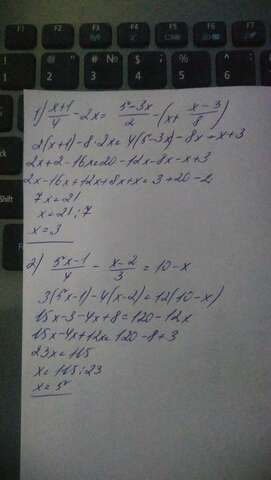 1) (x+1)/4 - 2x = (5-3x)/2 - (x + (x-3)/8)
2(x+1)-8·2x=4(5-3x)-8x+x+3
2x+2-16x=20-12x-8x-x+3
2x-16x+12x+8x+x=3+20-2
7x=21
x=21:7
x=3
2) (5x-1)/4 - (x-2)/3 = 10-x
3(5x-1)-4(x-2)=12(10-x)
15x-3-4x+8=120-12x
15x-4x+12x=120-8+3
23x=115
x=115:23
x=5